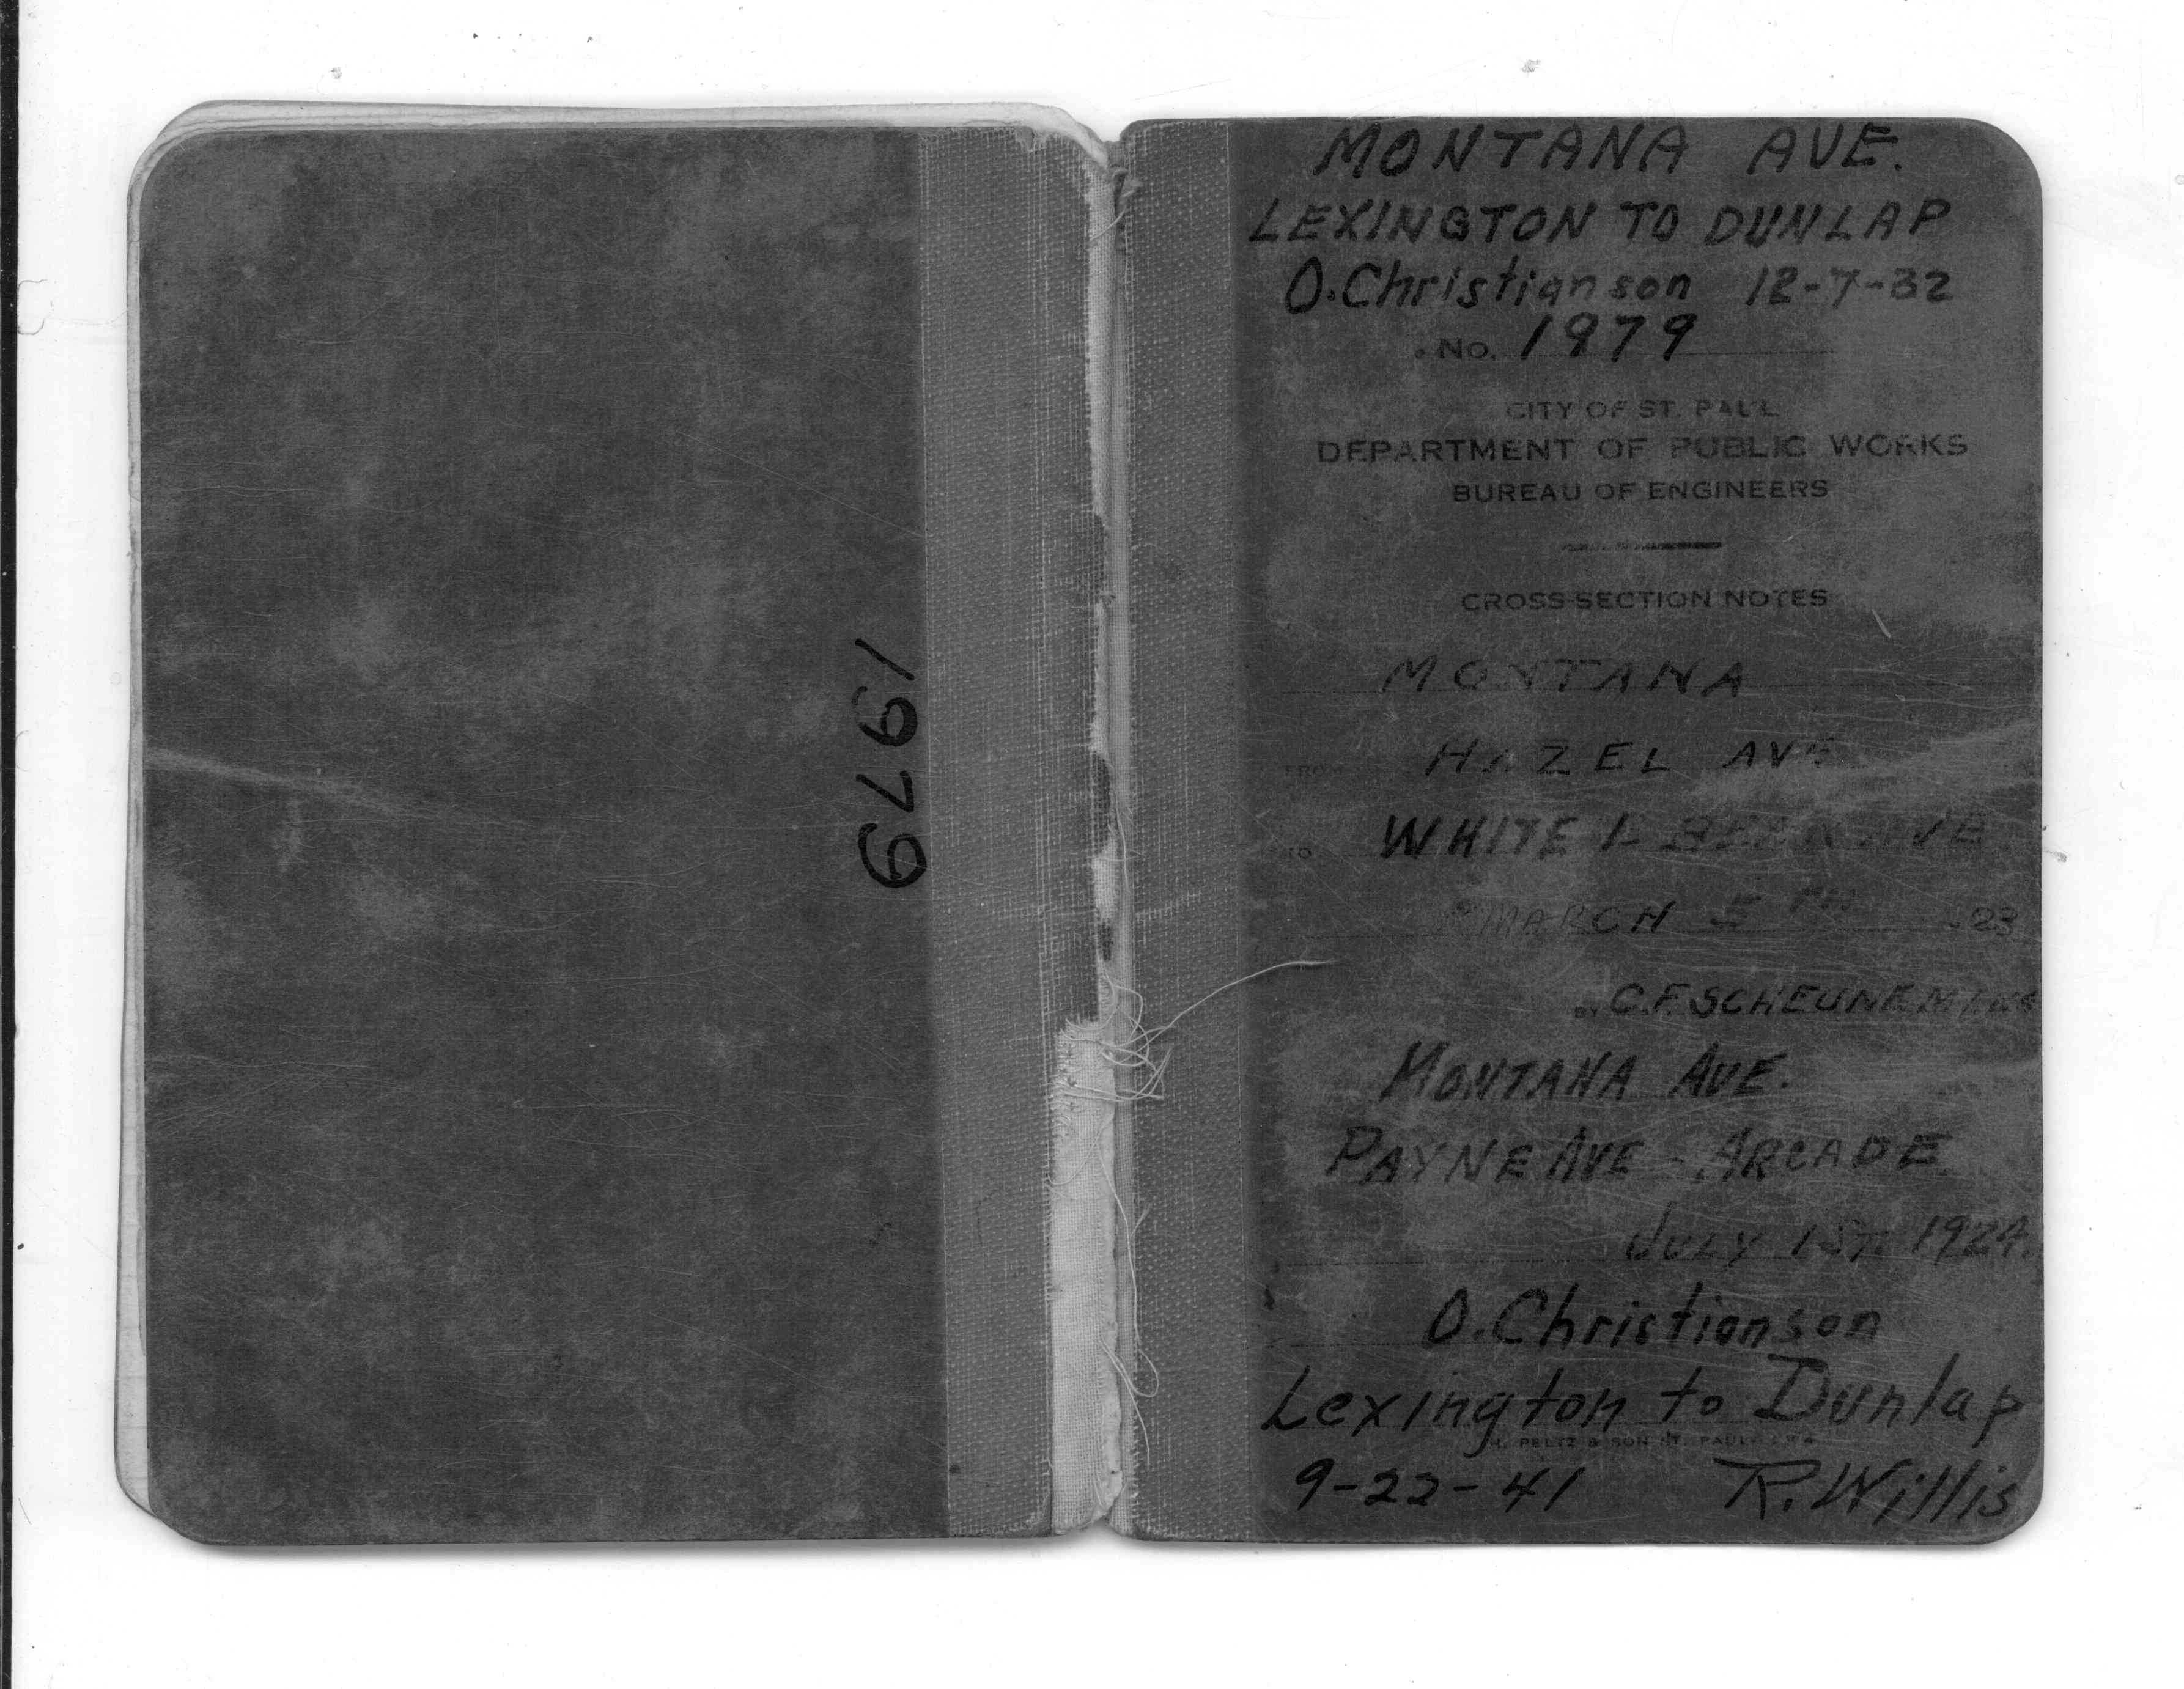 1979
MONTANA AVE.
LEXINGTON TO DUNLAP
O. Christianson 12-7-32
No. 1979
CITY OF ST. PAUL
DEPARTMENT OF PUBLIC WORKS
BUREAU OF ENGINEERS
CROSS-SECTION NOTES
MONTANA
FROM HAZEL AVE
TO WHITE BEAR AVE
MARCH 5TH 23
BY C.F. SCHEUNEMANN
MONTANA AVE.
PAYNE AVE - ARCADE
JULY 1ST. 1924.
O. Christianson
Lexington to Dunlap
PELTZ & SON ST. PAUL
9-22-41 R. Willis